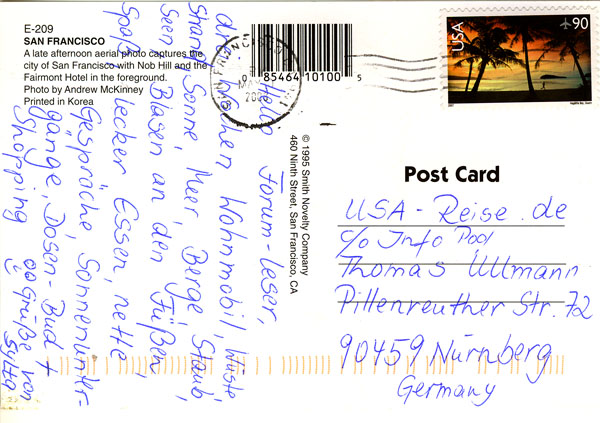 E-209
SAN FRANCISCO
A late afternoon aerial photo captures the
city of San Francisco with Nob Hill and the
Fairmont Hotel in the foreground.
Photo by Andrew McKinney
Printed in Korea
0 85464 10100 5
SAN FRANCISCO
USA
90
© 1995 Smith Novelty Company
460 Ninth Street, San Francisco, CA
Hallo Forum-Leser,
drei Wochen Wohnmobil, Wüste,
Strand, Sonne, Meer, Berge, Staub,
Seen, Blasen an den Füßen,
Spaß, lecker Essen, nette
Gespräche, Sonnenunter-
gänge, Dosen-Bud +
Shopping
Grüße von
Sylta
Post Card
USA-Reise.de
c/o Info Pool
Thomas Ullmann
Pillenreuther Str. 72
90459 Nürnberg
Germany